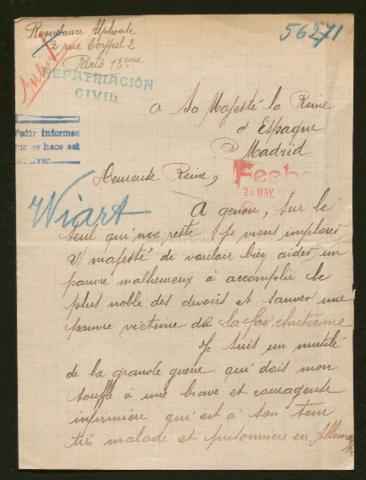 Requetaure Alphonse
2 rue Coypel 2
Paris 13eme
56271
REPATRIACIÓN
CIVIL
a Sa Majesté la Reine
d'Espagne
Madrid
Pedir informes
que se hace así
Heureuse Reine,
Fecha
26 MAY.
Wiart
A genou, sur le
seul qui me reste je vous implore
V majesté de vouloir bien aider un
pauvre malheureux à accomplir le
plus noble des devoirs et sauver une
pauvre victime de la foi chrétienne
Je suit un mutilé
de la grande guerre qui dois mon
souffle à une brave et courageuse
infirmière qui est à son tour
très malade et prisonnière en Allemagne